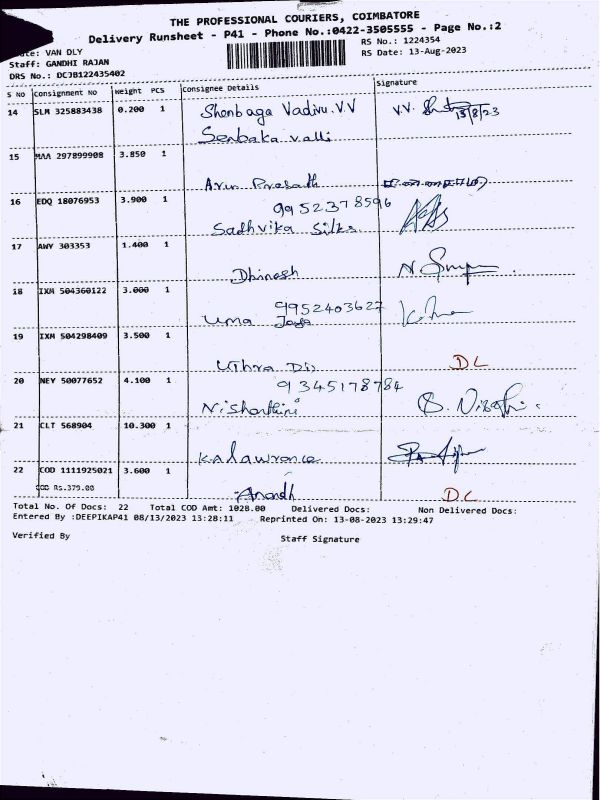 THE PROFESSIONAL COURIERS, COIMBATORE
Delivery Runsheet - P41 - Phone No.:0422-3505555 - Page No.:2
VAN DLY
RS No.: 1224354
Staff: GANDHI RAJAN
RS Date: 13-Aug-2023
DRS No.: DCJB122435402
S NO Consignment NO Weight PCS Consignee Details Signature
14 SLM 325883438 0.200 1 Shenbaga Vadivu.V.V V.V. 13/8/23
Senbaka valli
15 MAA 297899908 3.850 1
Arun Prasath
16 EDQ 18076953 3.900 1 9952378596
Sadhvika Silks
17 AWY 303353 1.400 1
Dhinesh
18 IXM 504360122 3.000 1 9952403627
Uma Jaya
19 IXM 504298409 3.500 1
Uthra Dis DL
20 NEY 50077652 4.100 1 9345178784
Nishanthini
21 CLT 568904 10.300 1
K.A lawrance
22 COD 1111925021 3.600 1
COD Rs.379.00
Anandh DL
Total No. Of Docs: 22 Total COD Amt: 1028.00 Delivered Docs: Non Delivered Docs:
Entered By :DEEPIKAP41 08/13/2023 13:28:11 Reprinted On: 13-08-2023 13:29:47
Verified By Staff Signature